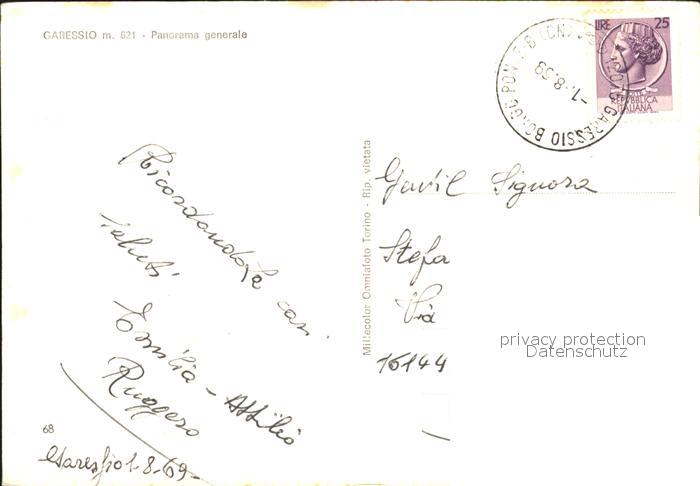 GARESSIO m. 621 - Panorama generale
LIRE 25
REPVBBLICA
ITALIANA
GARESSIO BORGO PON
-1.-8.69
Ricordandola cari
saluti
Emilia - Attilio
Ruggero
68
Garessio 1-8-69-
Millecolor Omniafoto Torino - Rip. vietata
Gentil Signora
Stefa
Via
16144
privacy protection
Datenschutz